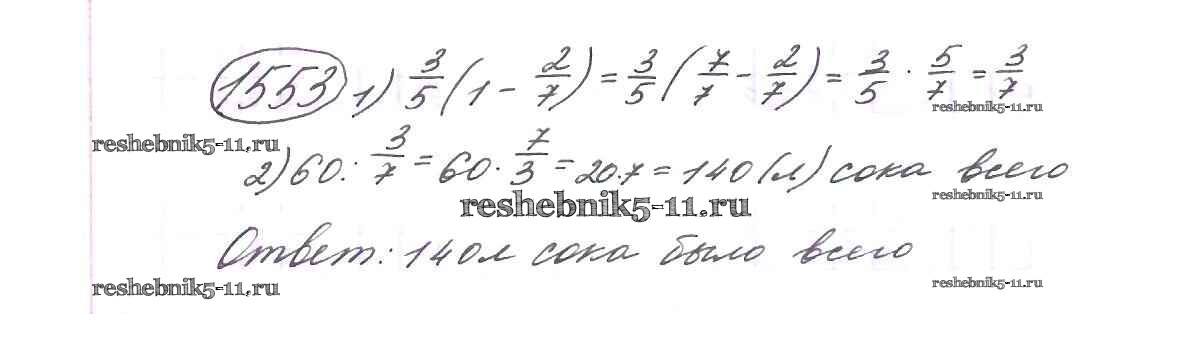 1553 1) 3/5 (1 - 2/7) = 3/5 (7/7 - 2/7) = 3/5 · 5/7 = 3/7
reshebnik5-11.ru
reshebnik5-11.ru
2) 60 : 3/7 = 60 · 7/3 = 20·7 = 140 (л) сока всего
reshebnik5-11.ru
reshebnik5-11.ru
Ответ: 140л сока было всего
reshebnik5-11.ru
reshebnik5-11.ru